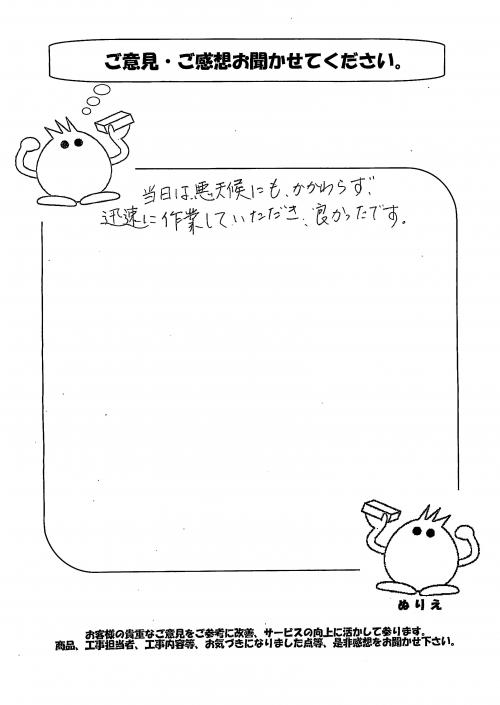 ご意見・ご感想お聞かせてください。
当日は、悪天候にも、かかわらず、
迅速に作業していただき、良かったです。
ぬりえ
お客様の貴重なご意見をご参考に改善、サービスの向上に活かして参ります。
商品、工事担当者、工事内容等、お気づきになりました点等、是非感想をお聞かせ下さい。